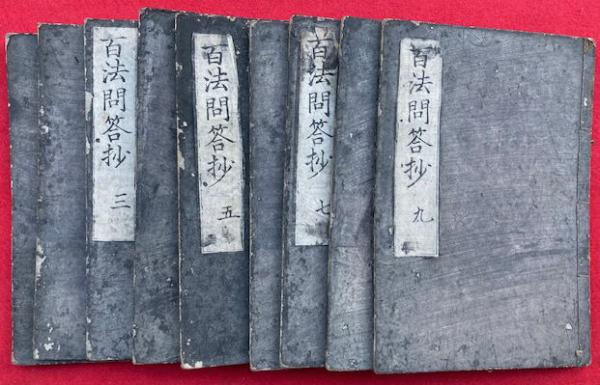 百法問答抄 三
百法問答抄 五
百法問答抄 七
百法問答抄 九